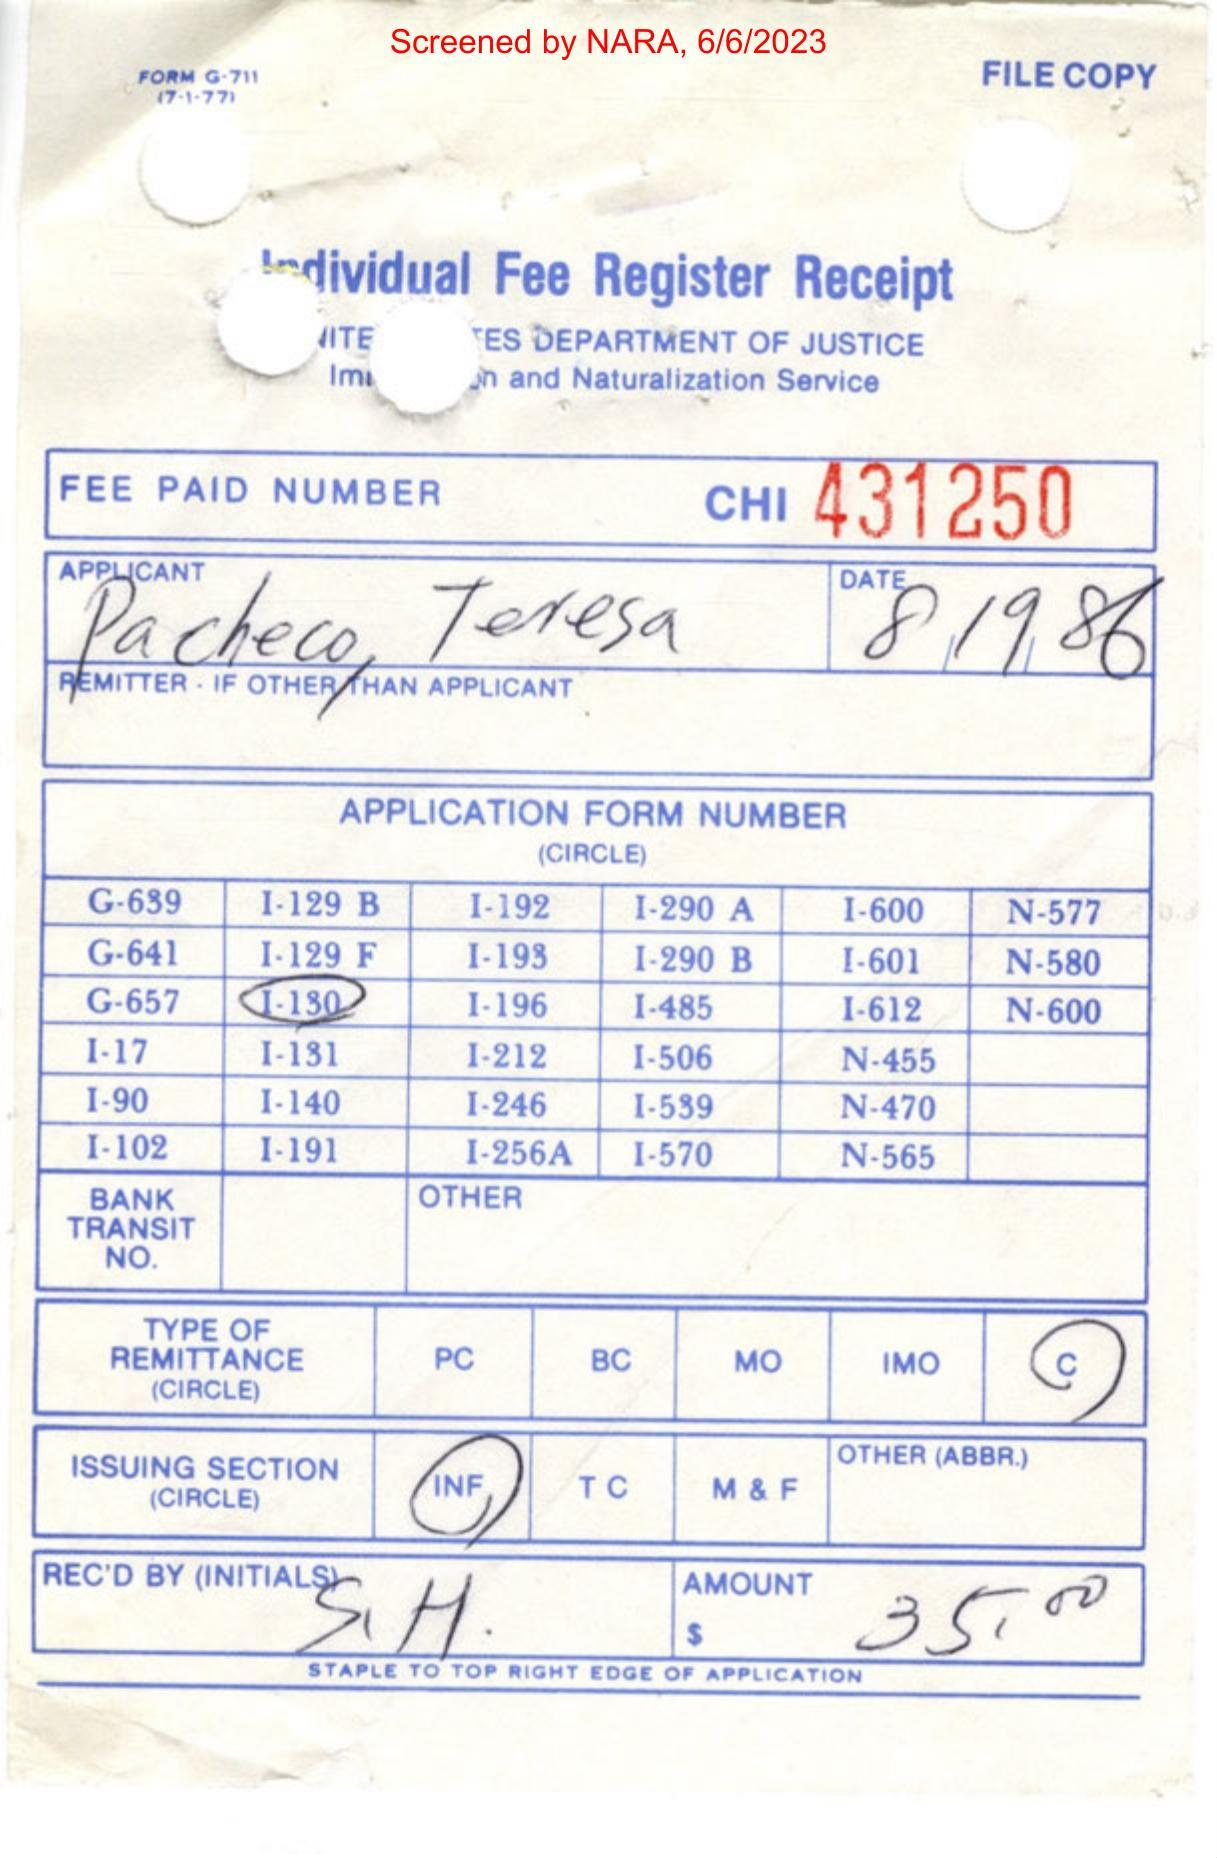 Screened by NARA, 6/6/2023
FORM G-711
(7-1-77)
FILE COPY
Individual Fee Register Receipt
DEPARTMENT OF JUSTICE
and Naturalization Service
FEE PAID NUMBER CHI 431250
APPLICANT DATE
Pacheco, Teresa 8/19/86
REMITTER - IF OTHER THAN APPLICANT
APPLICATION FORM NUMBER
(CIRCLE)
G-639 I-129 B I-192 I-290 A I-600 N-577
G-641 I-129 F I-193 I-290 B I-601 N-580
G-657 I-130 I-196 I-485 I-612 N-600
I-17 I-131 I-212 I-506 N-455
I-90 I-140 I-246 I-539 N-470
I-102 I-191 I-256A I-570 N-565
BANK TRANSIT NO. OTHER
TYPE OF REMITTANCE (CIRCLE) PC BC MO IMO C
ISSUING SECTION (CIRCLE) INF T C M & F OTHER (ABBR.)
REC'D BY (INITIALS) S.H. AMOUNT $ 35.00
STAPLE TO TOP RIGHT EDGE OF APPLICATION